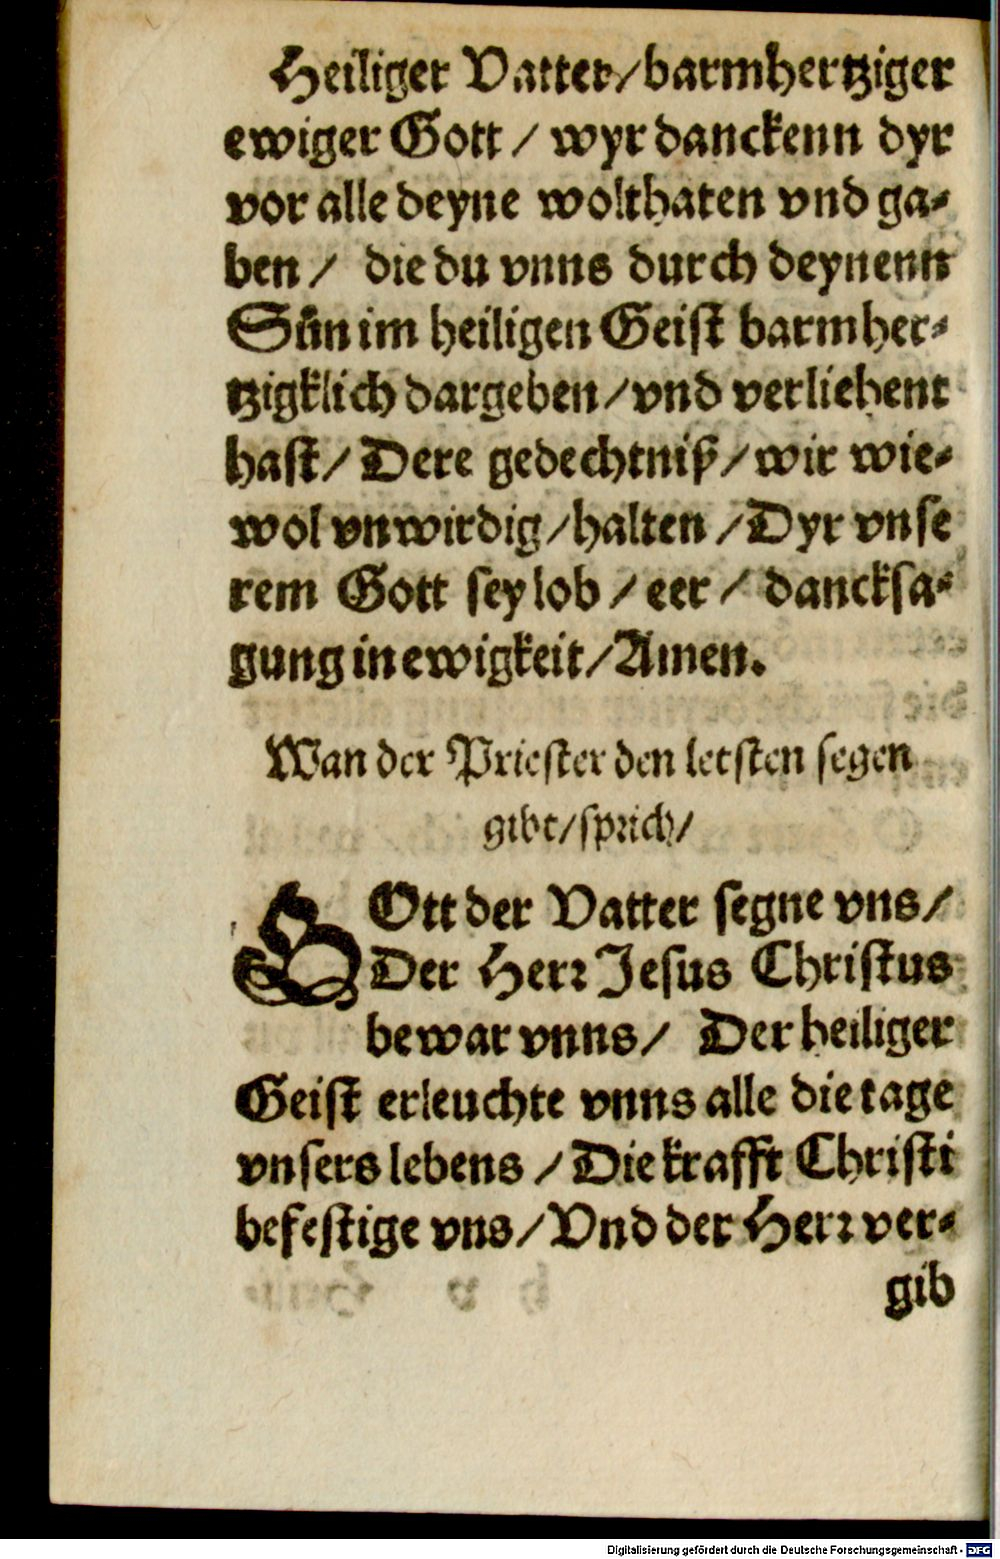 Heiliger Vatter/barmhertziger
ewiger Gott / wyr danckenn dyr
vor alle deyne wolthaten vnd ga⸗
ben / die du vnns durch deynenn
Sůn im heiligen Geist barmher⸗
tzigklich dargeben/vnd verliehenn
hast/ Dere gedechtniß/wir wie⸗
wol vnwirdig/halten /Dyr vnse
rem Gott sey lob / eer / dancksa⸗
gung in ewigkeit/Amen.
Wan der Priester den letsten segen
gibt/sprich/
GOtt der Vatter segne vns/
Der Herr Jesus Christus
bewar vnns/ Der heiliger
Geist erleuchte vnns alle die tage
vnsers lebens /Die krafft Christi
befestige vns/Vnd der Herr ver⸗
gib
Digitalisierung gefördert durch die Deutsche Forschungsgemeinschaft - DFG